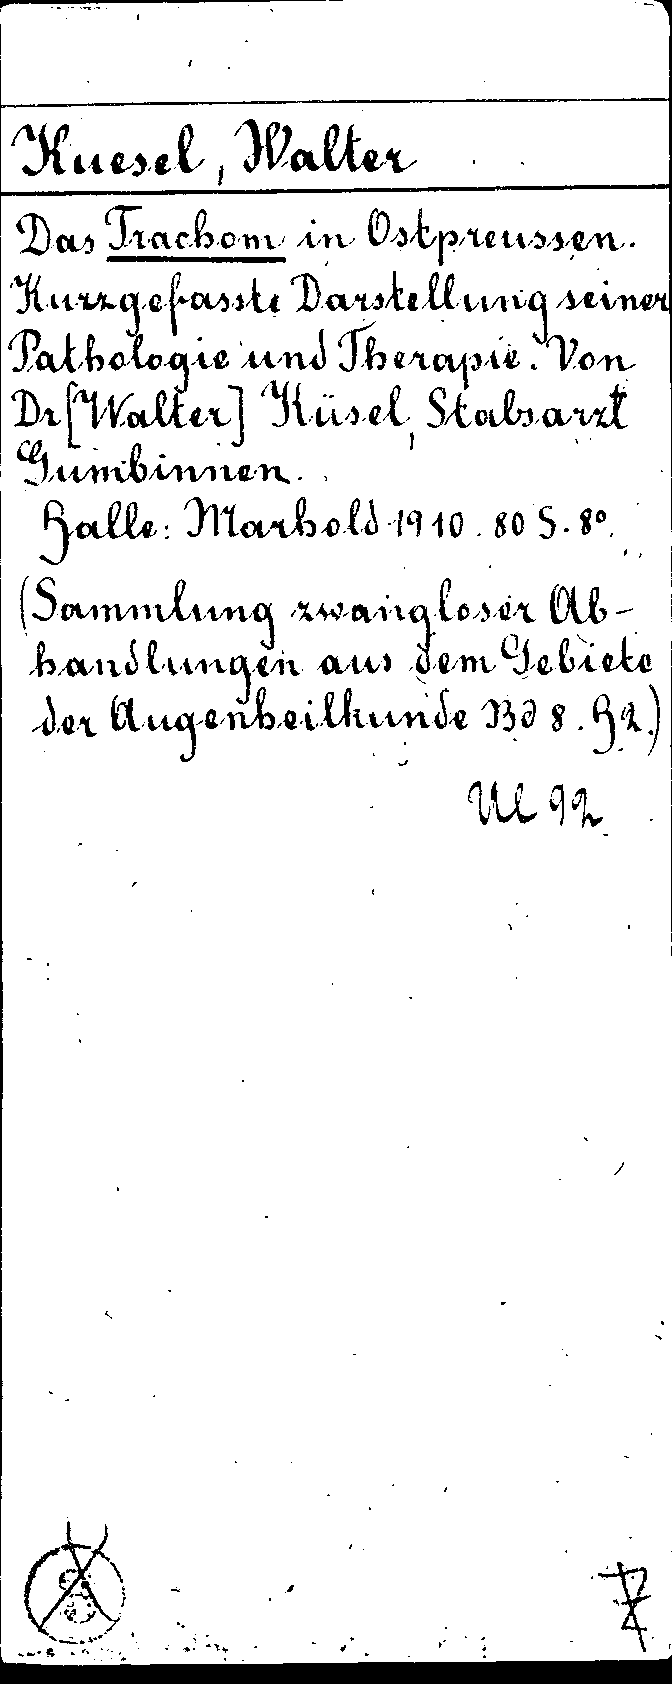 Kuesel, Walter
Das Trachom in Ostpreussen.
Kurzgefasste Darstellung seiner
Pathologie und Therapie. Von
Dr [Walter] Küsel, Stabsarzt
Gumbinnen.
Halle: Marhold 1910. 80 S. 8°.
(Sammlung zwangloser Ab-
handlungen aus dem Gebiete
der Augenheilkunde Bd 8. H 2.)
Ul 92